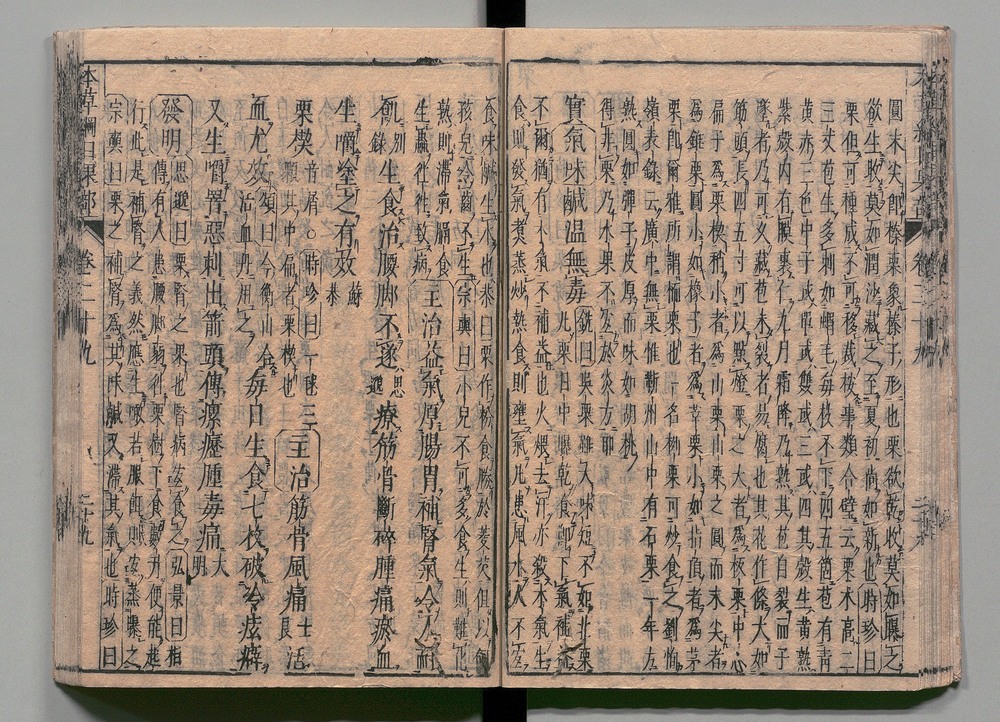 圓末尖即榛栗象榛子形也栗欲乾收莫如曝之
欲生收莫如潤沙藏之至夏初尚如新也時珍曰
栗但可種成不可移栽按事類合璧云栗木高二
三丈苞生多刺如蝟毛每枝不下四五箇苞有青
黄赤三色中子或單或雙或三或四其殻生黄熟
紫殻内有膜裹仁九月霜降乃熟其苞自裂而子
墜者乃可久藏苞未裂者易腐也其花作條大如
筯頭長四五寸可以點燈栗之大者爲板栗中心
扁子爲栗楔稍小者爲山栗山栗之圓而末尖者
爲錐栗圓小如橡子者爲莘栗小如指頂者爲茅
栗即爾雅所謂栭栗也一名栵栗可炒食之劉恂
嶺表錄云廣中無栗惟勤州山中有石栗一年方
熟圓如彈子皮厚而味如胡桃
得非栗乃水果不宜於炎方耶
實氣味鹹温無毒詵曰呉栗雖大味短不如北栗
凡栗日中曝乾食即下氣補益
不爾猶有木氣不補益也火煨去汗亦殺木氣生
食則發氣煮蒸炒熱食則壅氣凡患風水人不宜
食味鹹生水也恭曰栗作粉食勝於菱芡但以飼
孩兒令齒不生宗奭曰小兒不可多食生則難化
熟則滯氣膈食
生蟲往往致病主治益氣厚腸胃補腎氣令人耐
飢別錄生食治腰脚不遂思邈療筋骨斷碎腫痛瘀血
生嚼塗之有效蘇恭
栗楔音屑○時珍曰一毬三
顆其中扁者栗楔也主治筋骨風痛士良活
血尤效頌曰今衡山合
治血丹用之每日生食七枚破冷痃癖
又生嚼罯惡刺出箭頭傅瘰癧腫毒痛大明
發明思邈曰栗腎之果也腎病宜食之弘景曰相
傳有人患腰脚弱往栗樹下食數升便能起
行此是補腎之義然應生噉若服餌則宜蒸曝之
宗奭曰栗之補腎爲其味鹹又滯其氣也時珍曰
本草綱目果部 卷二十九 二十九